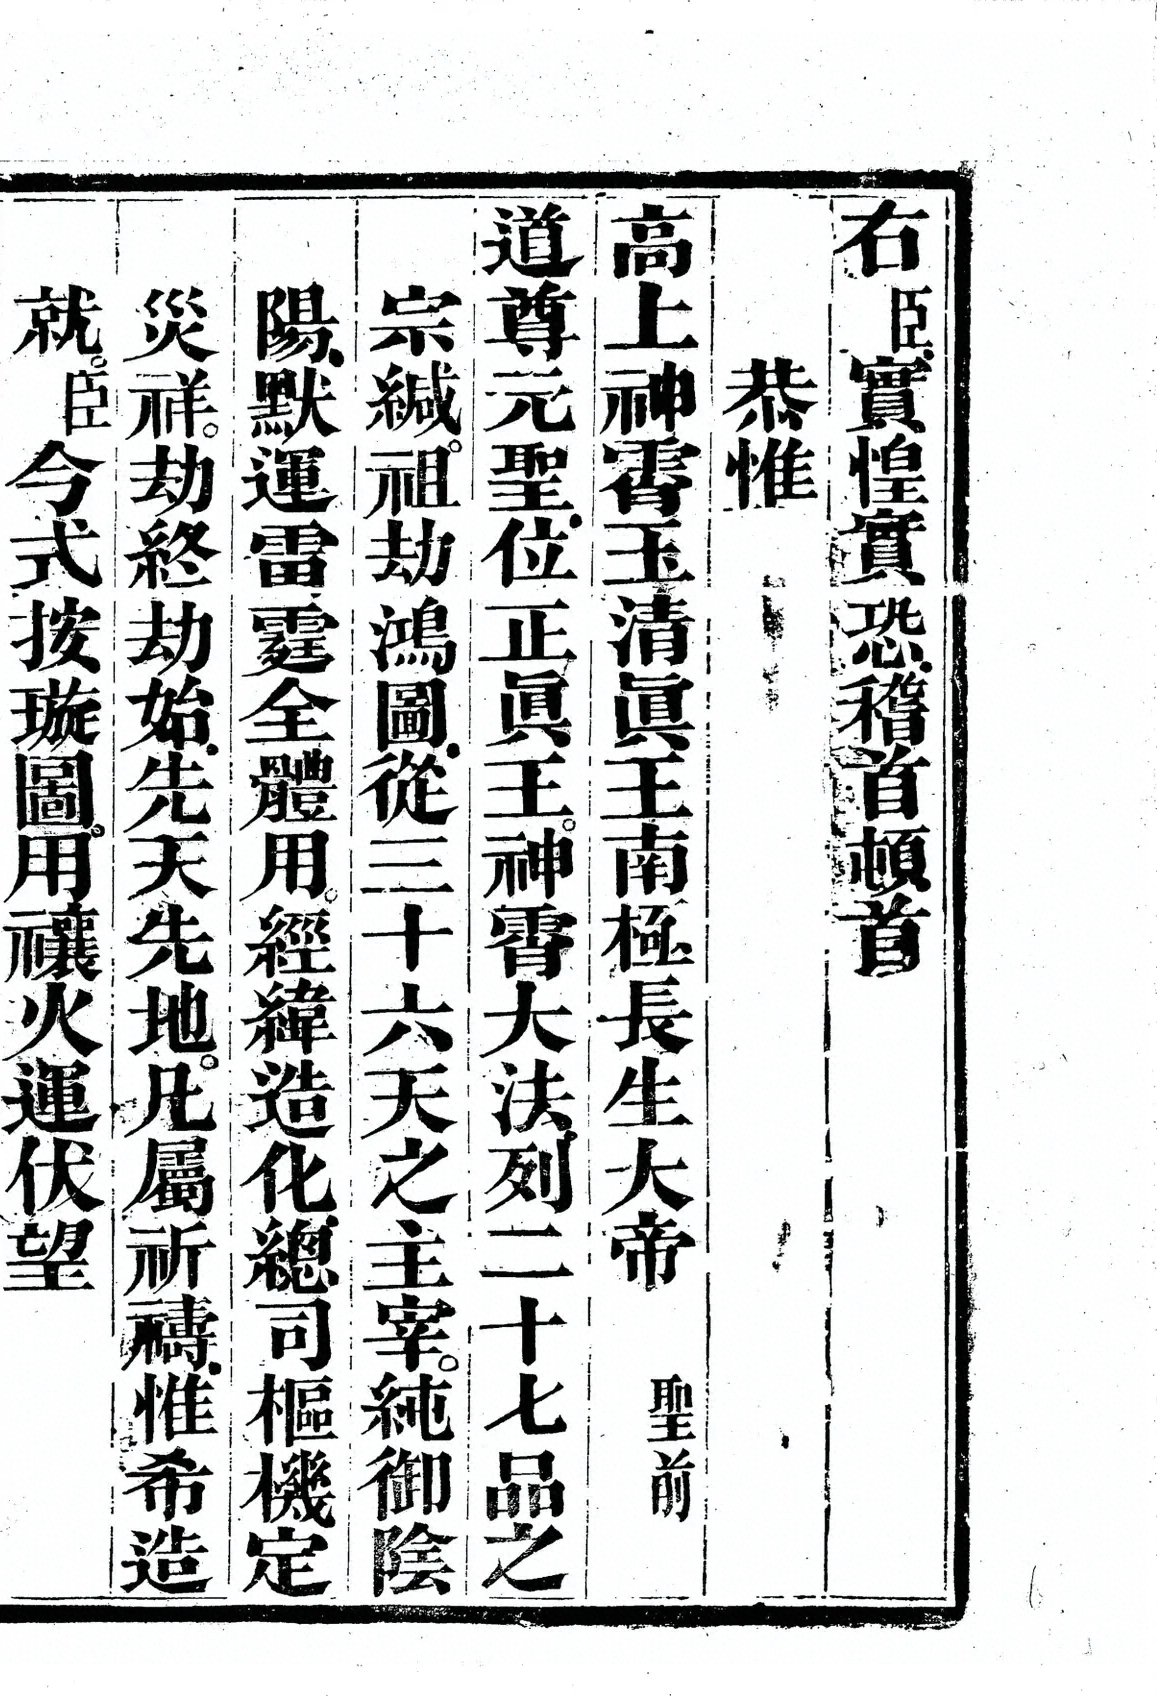 右臣實惶實恐稽首頓首
恭惟
高上神霄玉清眞王南極長生大帝 聖前
道尊元聖位正眞王神霄大法列二十七品之
宗緘祖劫鴻圖從三十六天之主宰純御陰
陽默運雷霆全體用經緯造化總司樞機定
災祥劫終劫始先天先地凡屬祈禱惟希造
就臣今式按璇圖用禳火運伏望